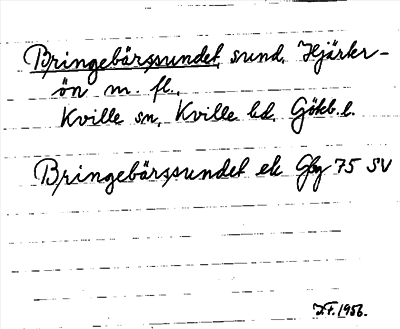 Bringebärssundet, sund, Hjärter-
ön m. fl.,
Kville sn, Kville hd, Götеb. l.
Bringebärssundet ek Gbg 75 SV
1956.